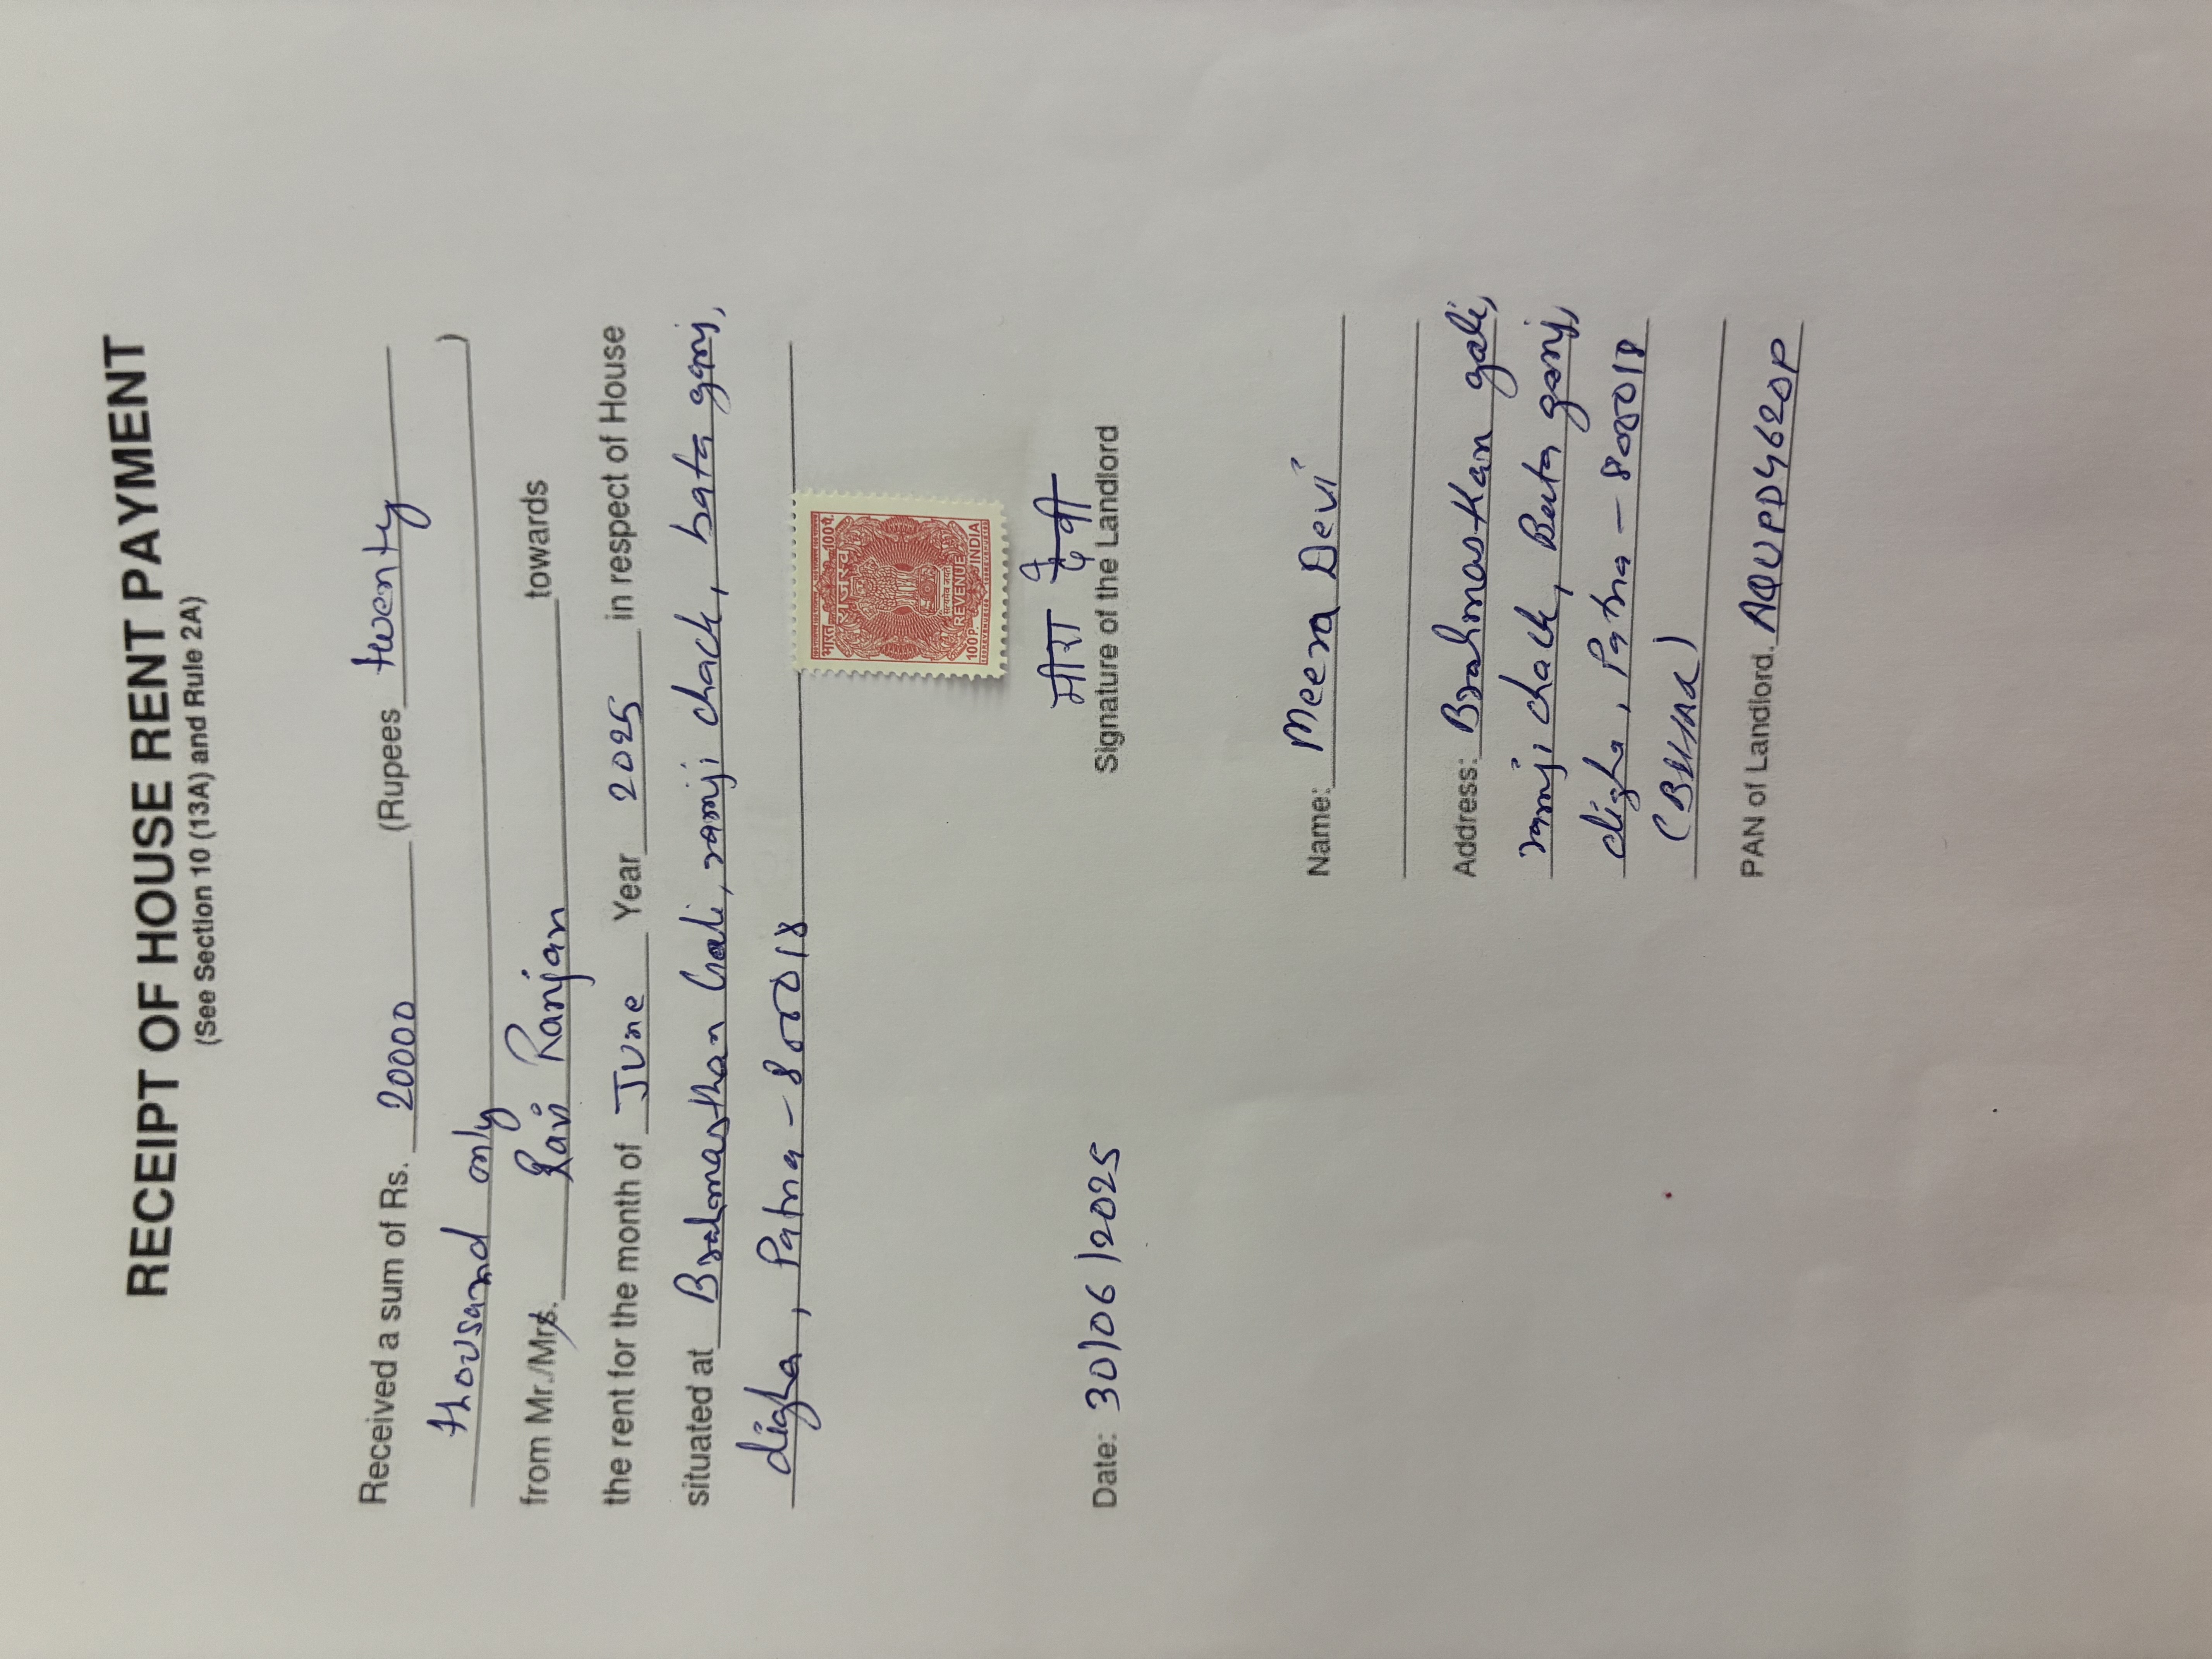 RECEIPT OF HOUSE RENT PAYMENT
(See Section 10 (13A) and Rule 2A)
Received a sum of Rs. 20000 (Rupees twenty
thousand only )
from Mr./Mrs. Ravi Ranjan towards
the rent for the month of June Year 2025 in respect of House
situated at Brahmasthan Gali, ramji chack, bata ganj,
digha, Patna - 800018
भारत 100पै.
राजस्व
सत्यमेव जयते
REVENUE
100P. INDIA
मीरा देवी
Date: 30/06/2025 Signature of the Landlord
Name: Meera Devi
Address: Brahmasthan gali,
ramji chack, Bata ganj,
digha, Patna - 800018
(BIHAR)
PAN of Landlord. AQUPD4620P